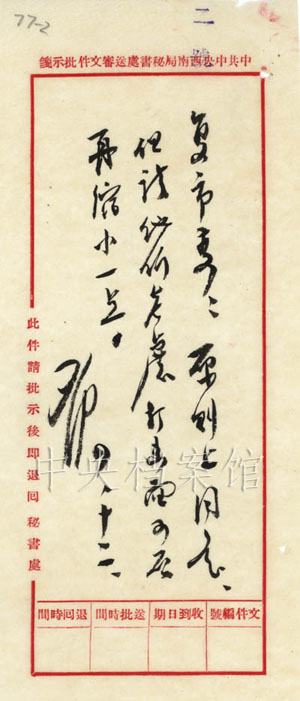 77-2
二號
中共中央西南局秘書處送審文件批示箋
复市委：原则上同意、
但请他们考虑打击面可否
再缩小一点。
邓 四、十二、
此件請批示後即退回秘書處
文件編號
收到日期
送批時間
退回時間
中央档案馆